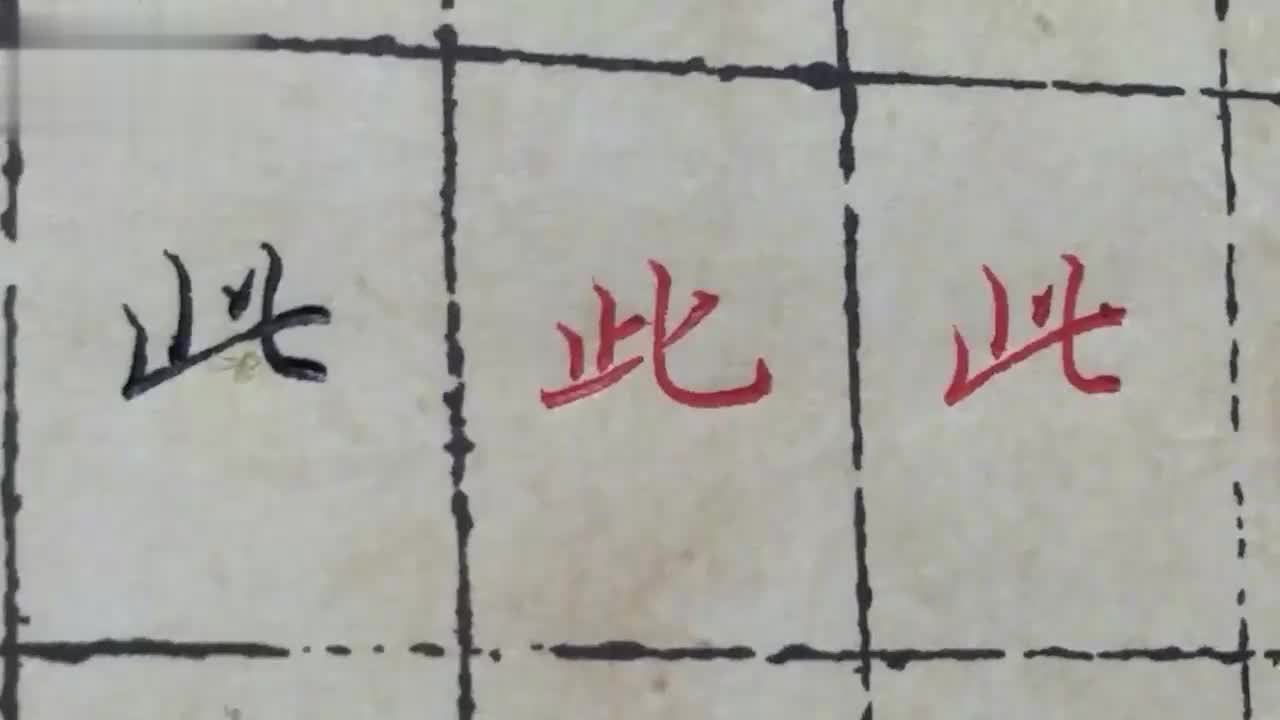 此 此 此